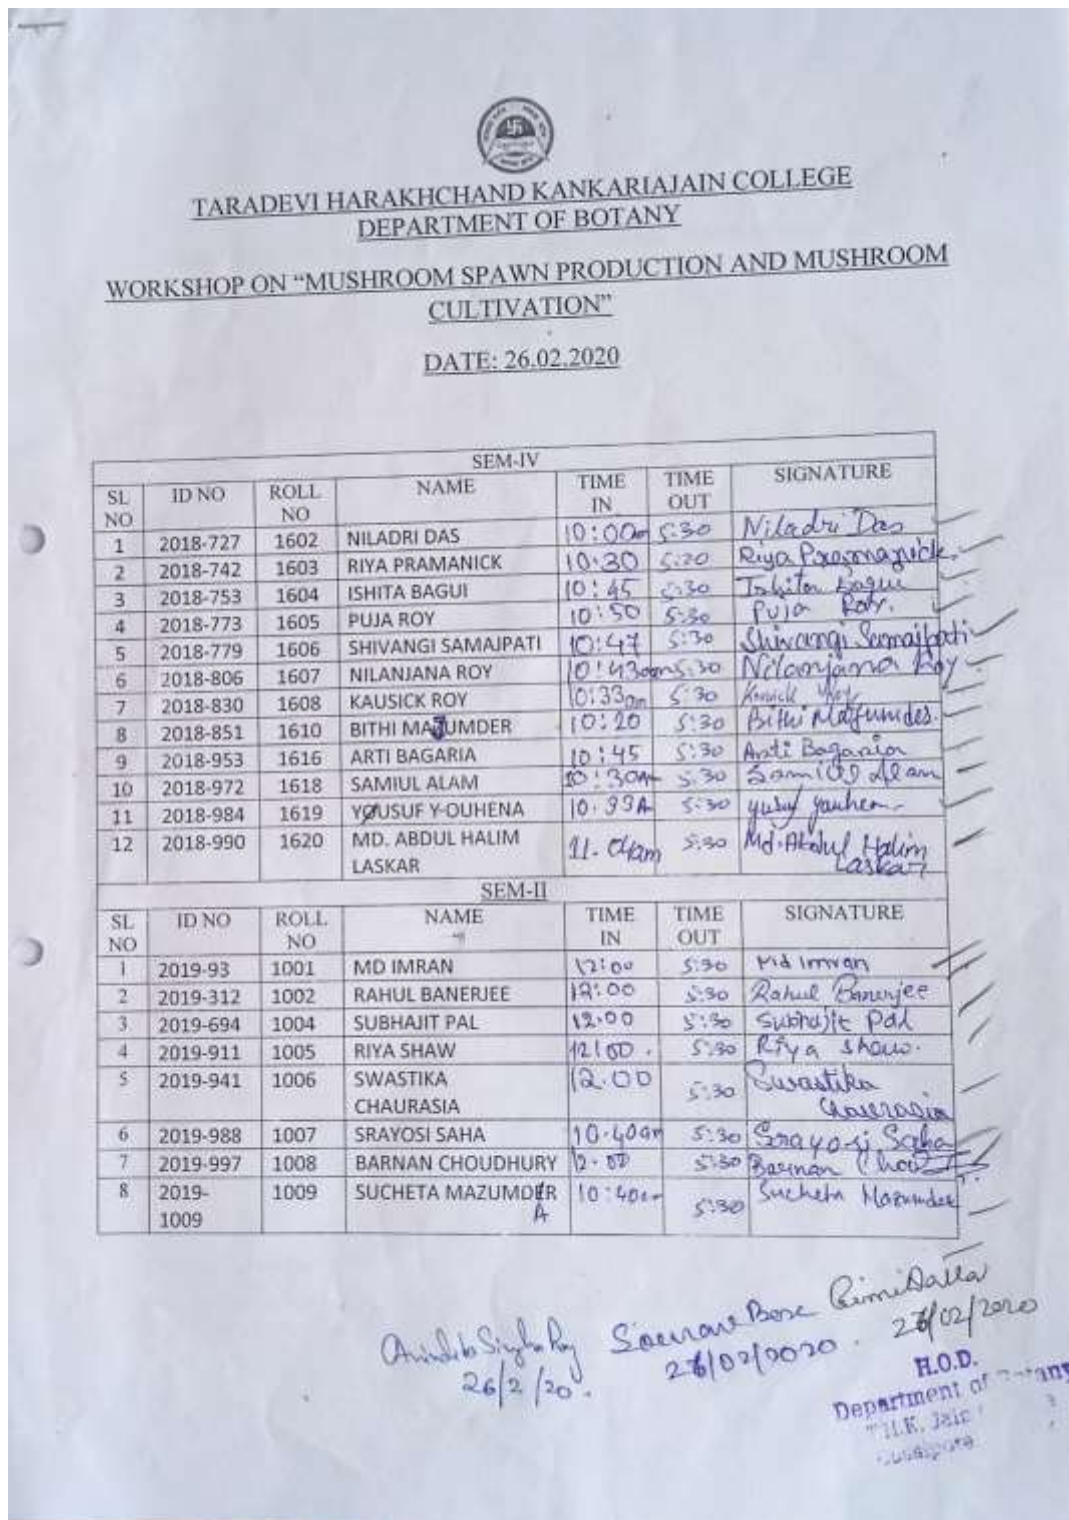 TARADEVI HARAKHCHAND KANKARIAJAIN COLLEGE
DEPARTMENT OF BOTANY
WORKSHOP ON “MUSHROOM SPAWN PRODUCTION AND MUSHROOM
CULTIVATION”
DATE: 26.02.2020
SEM-IV
SL NO ID NO ROLL NO NAME TIME IN TIME OUT SIGNATURE
1 2018-727 1602 NILADRI DAS 10:00am 5:30 Niladri Das
2 2018-742 1603 RIYA PRAMANICK 10:30 5:30 Riya Pramanick
3 2018-753 1604 ISHITA BAGUI 10:45 5:30 Ishita Bagui
4 2018-773 1605 PUJA ROY 10:50 5:30 Puja Roy.
5 2018-779 1606 SHIVANGI SAMAJPATI 10:47 5:30 Shivangi Samajpati
6 2018-806 1607 NILANJANA ROY 10:43am 5:30 Nilanjana Roy
7 2018-830 1608 KAUSICK ROY 10:33am 5:30 Kausick Roy
8 2018-851 1610 BITHI MAJUMDER 10:20 5:30 Bithi Majumder.
9 2018-953 1616 ARTI BAGARIA 10:45 5:30 Arti Bagaria
10 2018-972 1618 SAMIUL ALAM 10:30AM 5:30 Samiul Alam
11 2018-984 1619 YOUSUF Y-OUHENA 5:30
12 2018-990 1620 MD. ABDUL HALIM 11.04am 5:30 Md. Abdul Halim
LASKAR Laskar
SEM-II
SL NO ID NO ROLL NO NAME TIME IN TIME OUT SIGNATURE
1 2019-93 1001 MD IMRAN 12:00 5:30 Md Imran
2 2019-312 1002 RAHUL BANERJEE 12:00 5:30 Rahul Banerjee
3 2019-694 1004 SUBHAJIT PAL 12.00 5:30 Subhajit Pal
4 2019-911 1005 RIYA SHAW 12:00. 5:30 Riya Shaw.
5 2019-941 1006 SWASTIKA 12.00 5:30 Swastika
CHAURASIA Chaurasia
6 2019-988 1007 SRAYOSI SAHA 10.40am 5:30 Srayosi Saha
7 2019-997 1008 BARNAN CHOUDHURY 12.00 5:30 Barnan
8 2019- 1009 SUCHETA MAZUMDER 10:40am 5:30 Sucheta Mazumder
1009 A
Anindita Singha Roy Sourav Bose Rimi Datta
26/2/20. 26/02/2020. 26/02/2020
H.O.D.
Department of Botany